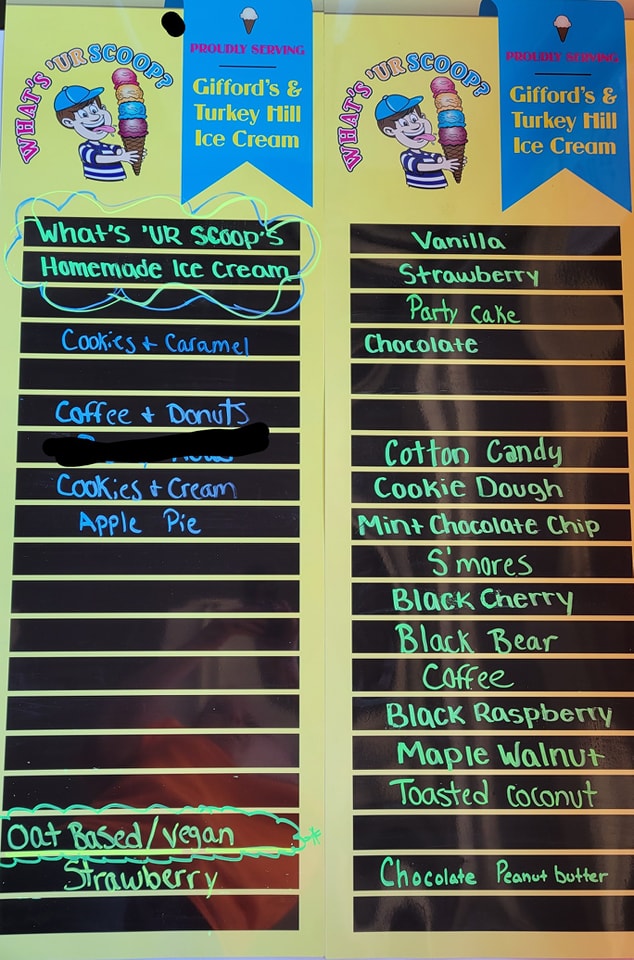 WHAT'S 'UR SCOOP?
PROUDLY SERVING
Gifford's &
Turkey Hill
Ice Cream
What's 'UR SCOOP'S
Homemade Ice Cream
Cookies + Caramel
Coffee + Donuts
Cookies + Cream
Apple Pie
Oat Based/Vegan
Strawberry
WHAT'S 'UR SCOOP?
PROUDLY SERVING
Gifford's &
Turkey Hill
Ice Cream
Vanilla
Strawberry
Party Cake
Chocolate
Cotton Candy
Cookie Dough
Mint Chocolate Chip
S'mores
Black Cherry
Black Bear
Coffee
Black Raspberry
Maple Walnut
Toasted Coconut
Chocolate Peanut butter